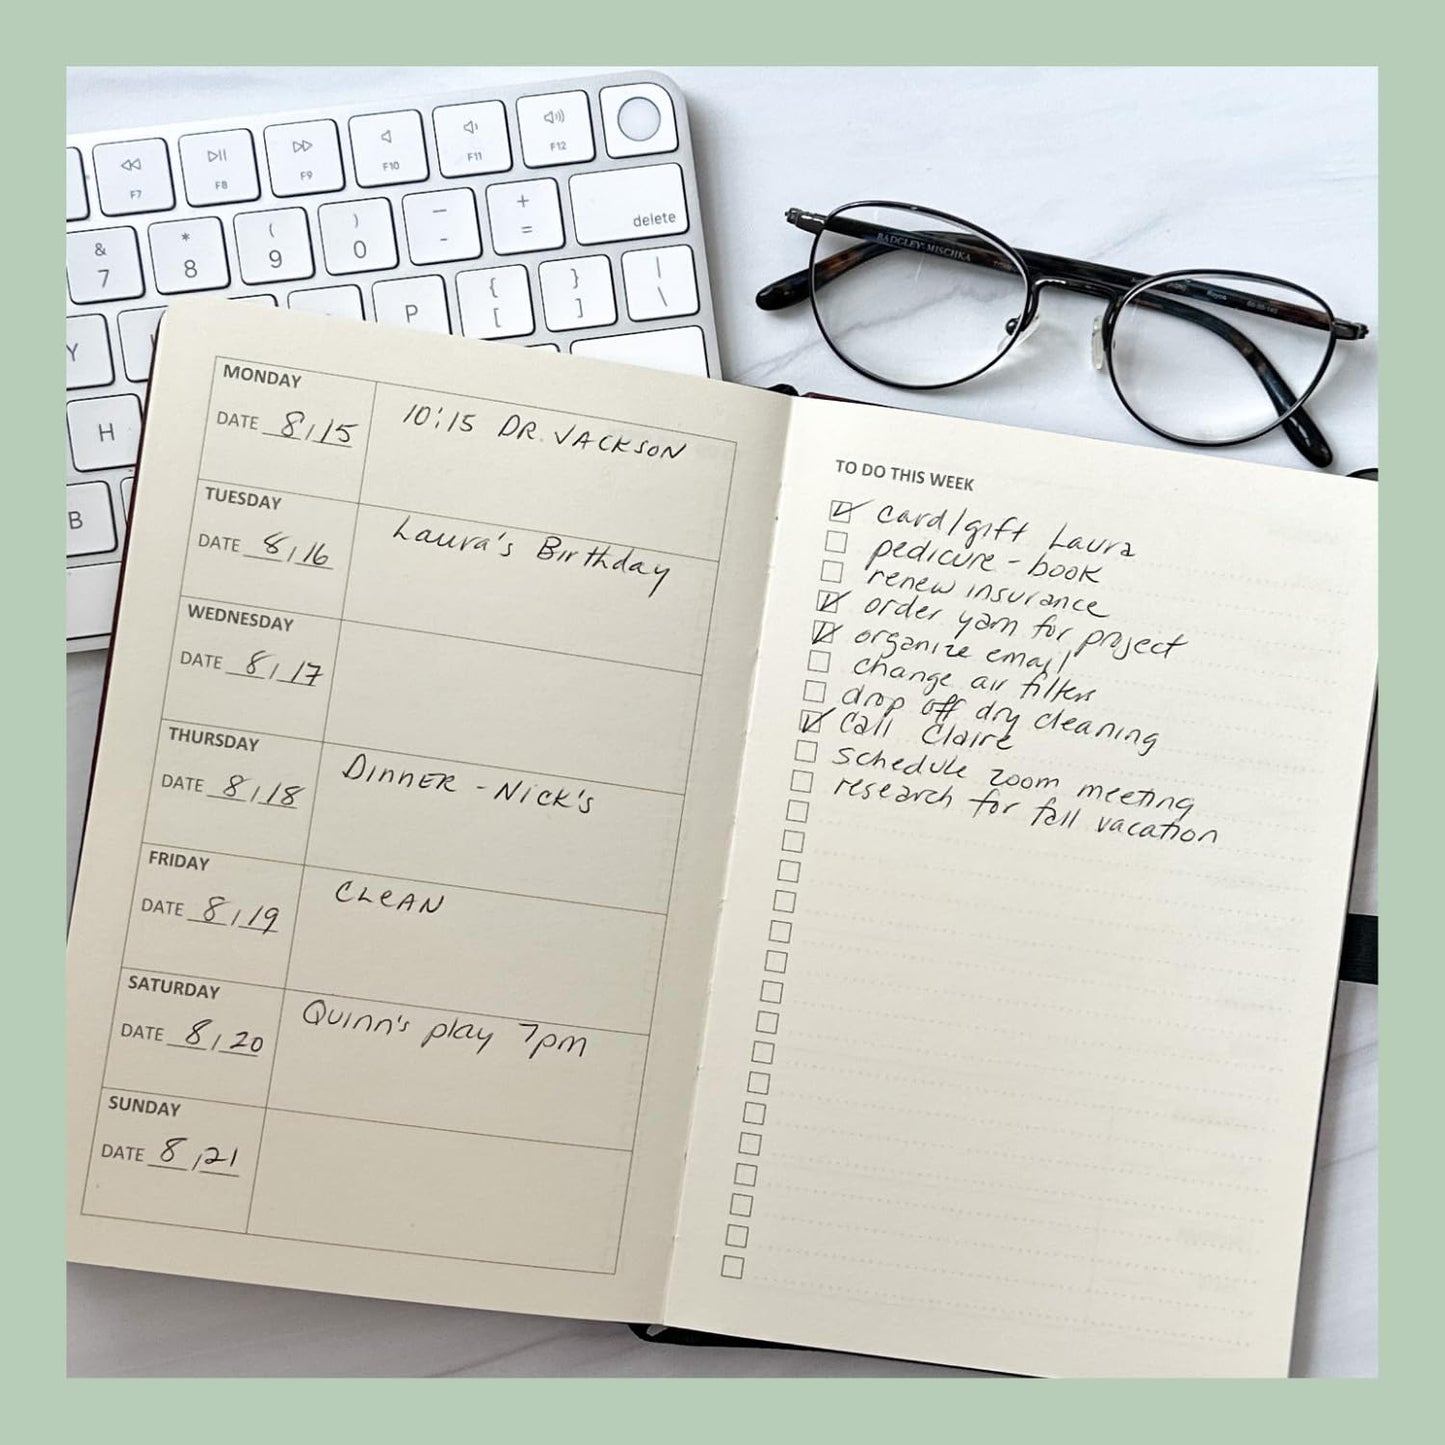 F7
F8
F9
F10
F11
F12
&
7
*
8
(
9
)
0
—
-
+
=
delete
Y
P
{
[
}
]
|
\
H
B
BADGLEY MISCHKA
MONDAY
DATE 8/15
10:15 DR. JACKSON
TUESDAY
DATE 8/16
Laura's Birthday
WEDNESDAY
DATE 8/17
THURSDAY
DATE 8/18
DINNER - NICK'S
FRIDAY
DATE 8/19
CLEAN
SATURDAY
DATE 8/20
Quinn's play 7pm
SUNDAY
DATE 8/21
TO DO THIS WEEK
card/gift Laura
pedicure - book
renew insurance
order yarn for project
organize email
change air filters
drop off dry cleaning
call Claire
schedule zoom meeting
research for fall vacation